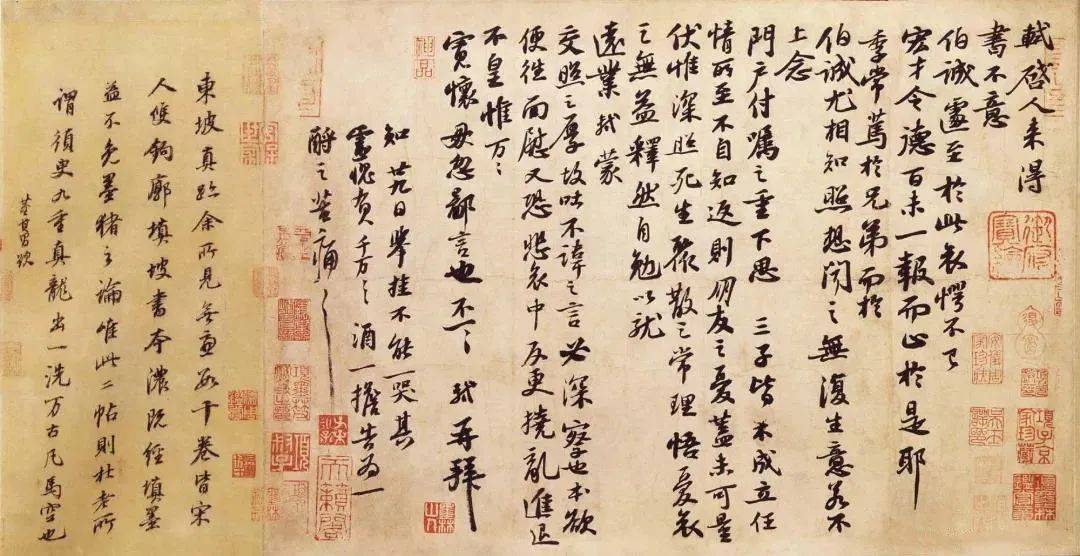 軾啓人来得
書不意
伯誠遽至於此哀愕不已
宏才令德百未一報而止於是耶
季常篤於兄弟而於
伯誠尤相知照想聞之無復生意若不
上念
門户付囑之重下思三子皆不成立任
情所至不自知返則朋友之憂蓋未可量
伏惟深照死生聚散之常理悟憂哀
之無益釋然自勉以就
遠業軾蒙
交照之厚故吐不諱之言必深察也本欲
便往面慰又恐悲哀中反更撓亂進退
不皇惟万々
寬懷毋忽鄙言也不一々軾再拜
知廿九日舉挂不能一哭其
靈愧負千万々酒一擔告為一
酹之苦痛々
東坡真跡余所見無慮數十卷皆宋
人雙鉤廓填坡書本濃既經填墨
益不免墨猪之論唯此二帖則杜老所
謂須臾九重真龍出一洗万古凡馬空也
董其昌跋
神品
御府寶繪
項子京家珍藏
天籟閣